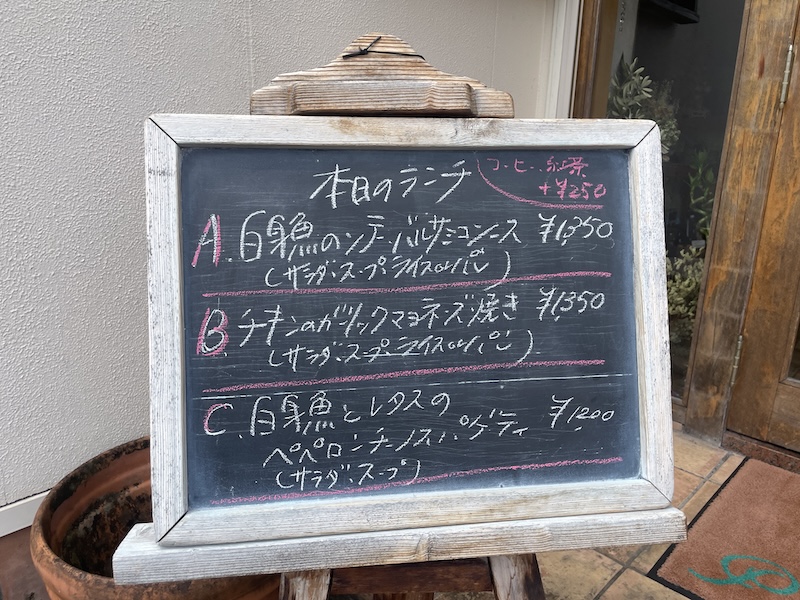 本日のランチ
コーヒー、紅茶
+¥250
A. 白身魚のソテーバルサミコソース ¥1,350
(サラダ・スープ ライスorパン)
B. チキンのガーリックマヨネーズ焼き ¥1350
(サラダ・スープ・ライスorパン)
C. 白身魚とレタスの ¥1200
ペペロンチーノスパゲティ
(サラダ・スープ)